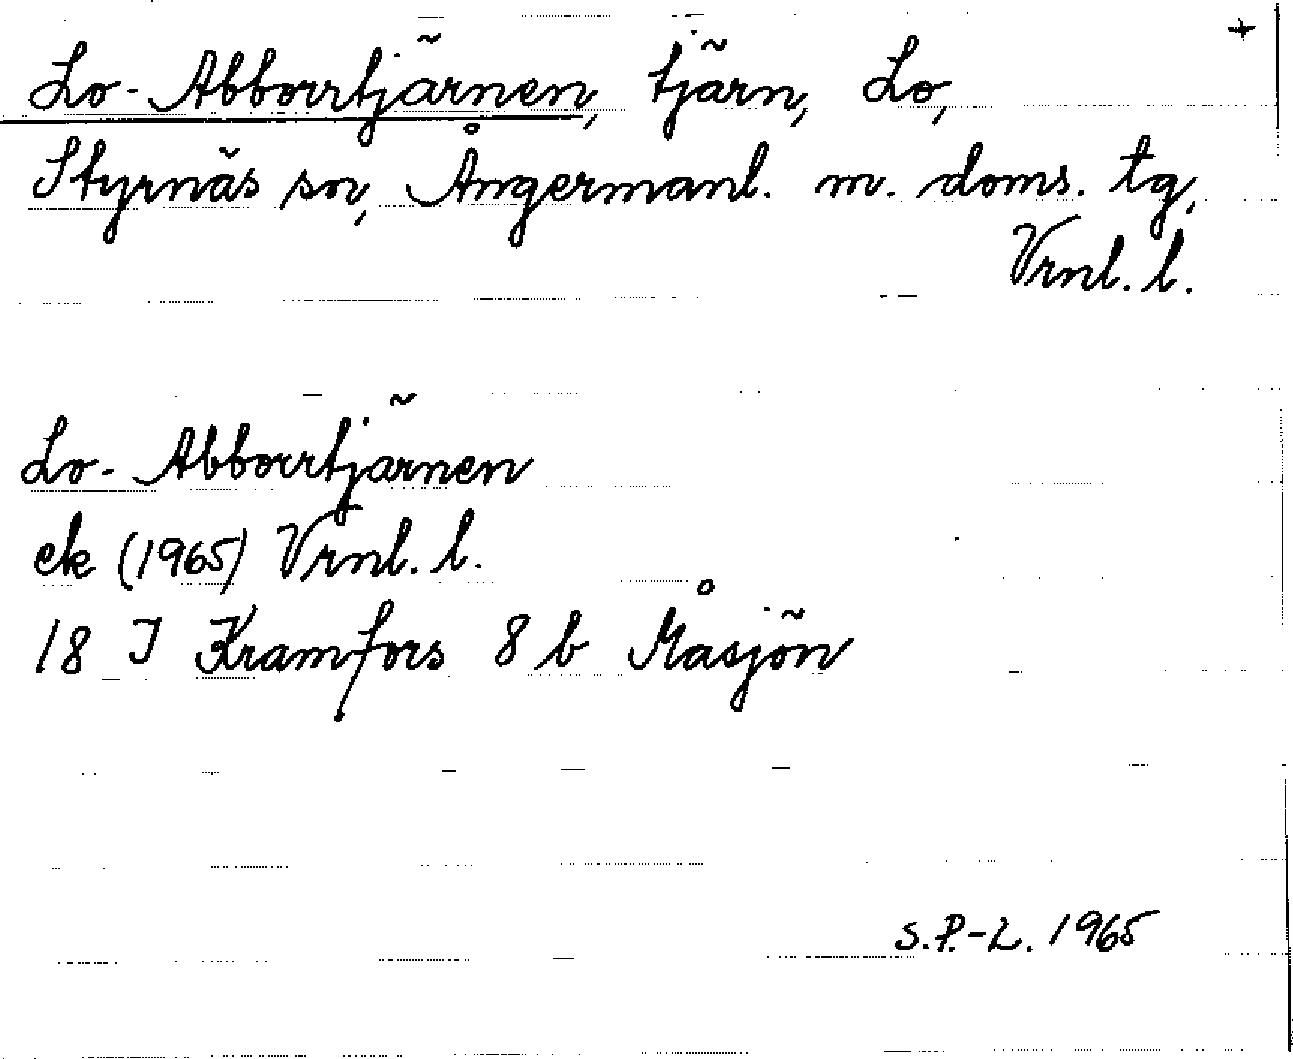 +
Lo-Abborrtjärnen, tjärn, Lo,
Styrnäs sn, Ångermanl. m. doms. tg,
Vrnl. l.
Lo-Abborrtjärnen
ek (1965) Vrnl. l.
18 I Kramfors 8 b Måsjön
S.P.-L. 1965